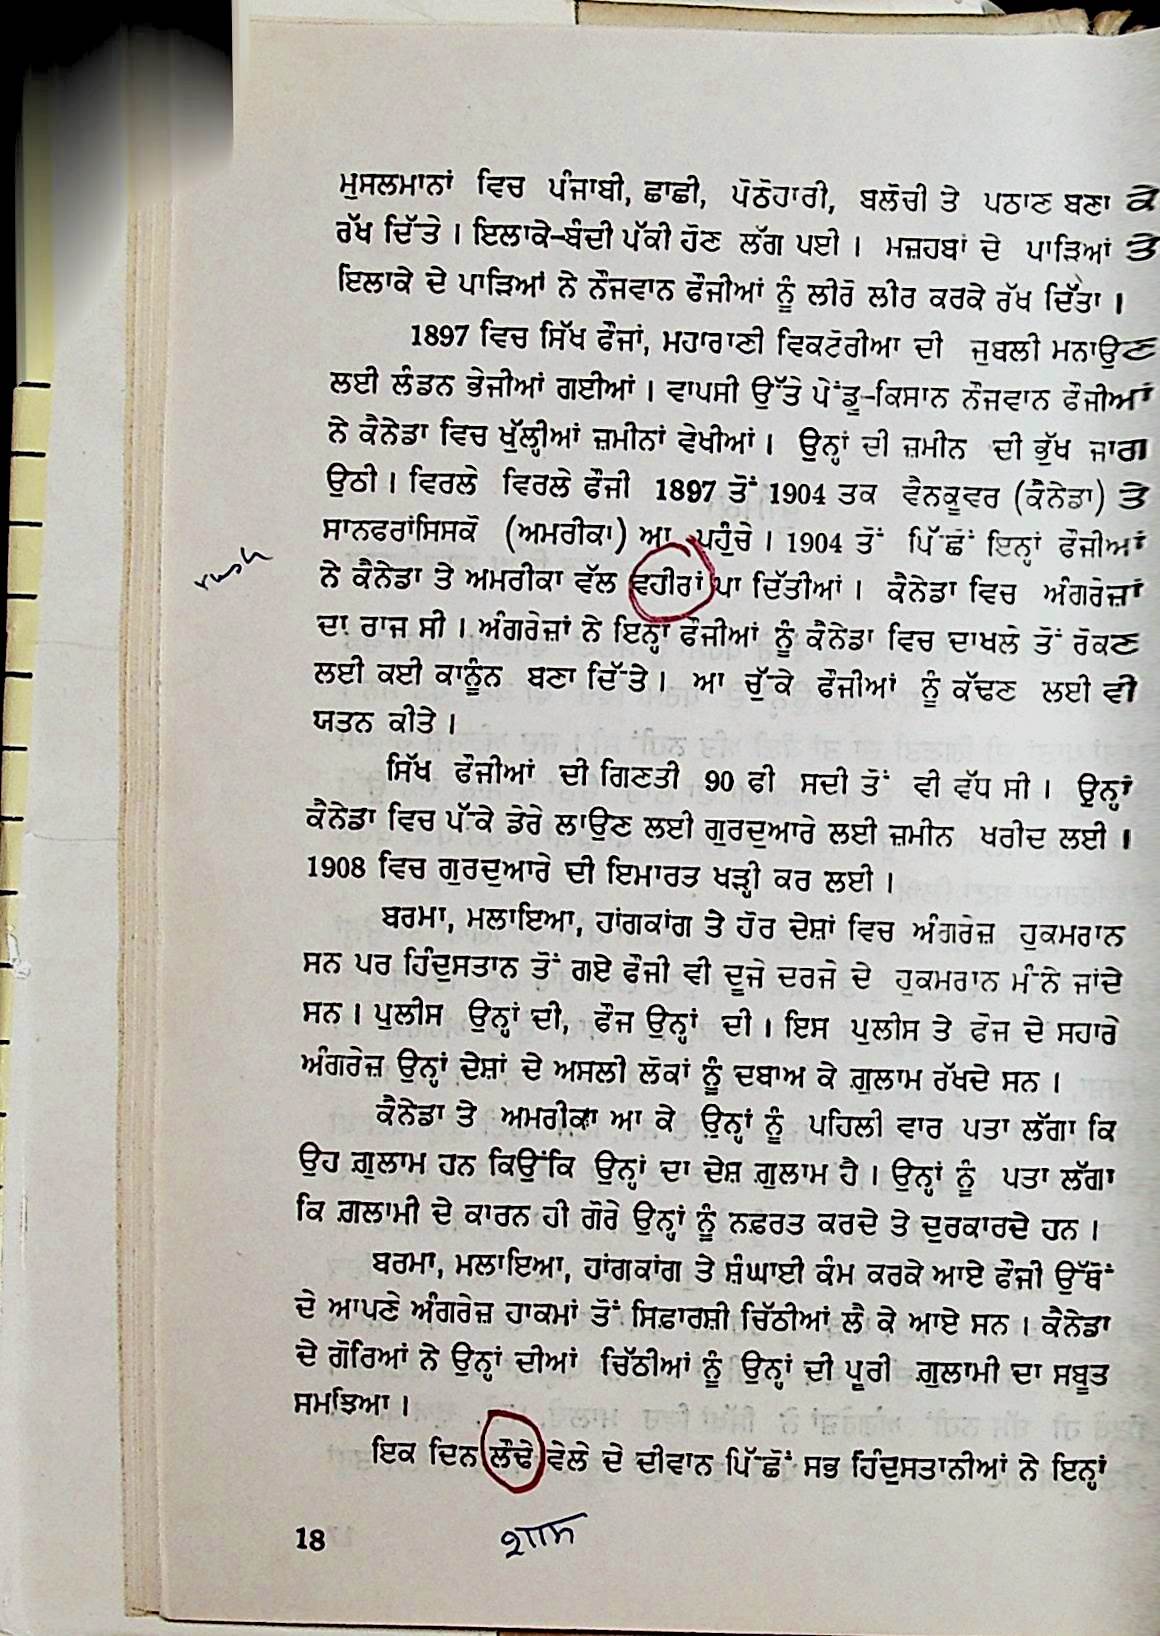 ਮੁਸਲਮਾਨਾਂ ਵਿਚ ਪੰਜਾਬੀ, ਛਾਛੀ, ਪੋਠੋਹਾਰੀ, ਬਲੋਚੀ ਤੇ ਪਠਾਣ ਬਣਾ ਕੇ
ਰੱਖ ਦਿੱਤੇ । ਇਲਾਕੇ-ਬੰਦੀ ਪੱਕੀ ਹੋਣ ਲੱਗ ਪਈ । ਮਜ਼ਹਬਾਂ ਦੇ ਪਾੜਿਆਂ ਤੇ
ਇਲਾਕੇ ਦੇ ਪਾੜਿਆਂ ਨੇ ਨੌਜਵਾਨ ਫੌਜੀਆਂ ਨੂੰ ਲੀਰੋ ਲੀਰ ਕਰਕੇ ਰੱਖ ਦਿੱਤਾ ।
1897 ਵਿਚ ਸਿੱਖ ਫੌਜਾਂ, ਮਹਾਰਾਣੀ ਵਿਕਟੋਰੀਆ ਦੀ ਜੁਬਲੀ ਮਨਾਉਣ
ਲਈ ਲੰਡਨ ਭੇਜੀਆਂ ਗਈਆਂ । ਵਾਪਸੀ ਉੱਤੇ ਪੇਂਡੂ-ਕਿਸਾਨ ਨੌਜਵਾਨ ਫੌਜੀਆਂ
ਨੇ ਕੈਨੇਡਾ ਵਿਚ ਖੁੱਲ੍ਹੀਆਂ ਜ਼ਮੀਨਾਂ ਵੇਖੀਆਂ । ਉਨ੍ਹਾਂ ਦੀ ਜ਼ਮੀਨ ਦੀ ਭੁੱਖ ਜਾਗ
ਉਠੀ । ਵਿਰਲੇ ਵਿਰਲੇ ਫੌਜੀ 1897 ਤੋਂ 1904 ਤਕ ਵੈਨਕੂਵਰ (ਕੈਨੇਡਾ) ਤੇ
ਸਾਨਫਰਾਂਸਿਸਕੋ (ਅਮਰੀਕਾ) ਆ ਪਹੁੰਚੇ । 1904 ਤੋਂ ਪਿੱਛੋਂ ਇਨ੍ਹਾਂ ਫੌਜੀਆਂ
rush
ਨੇ ਕੈਨੇਡਾ ਤੇ ਅਮਰੀਕਾ ਵੱਲ ਵਹੀਰਾਂ ਪਾ ਦਿੱਤੀਆਂ । ਕੈਨੇਡਾ ਵਿਚ ਅੰਗਰੇਜ਼ਾਂ
ਦਾ ਰਾਜ ਸੀ । ਅੰਗਰੇਜ਼ਾਂ ਨੇ ਇਨ੍ਹਾਂ ਫੌਜੀਆਂ ਨੂੰ ਕੈਨੇਡਾ ਵਿਚ ਦਾਖਲੇ ਤੋਂ ਰੋਕਣ
ਲਈ ਕਈ ਕਾਨੂੰਨ ਬਣਾ ਦਿੱਤੇ । ਆ ਚੁੱਕੇ ਫੌਜੀਆਂ ਨੂੰ ਕੱਢਣ ਲਈ ਵੀ
ਯਤਨ ਕੀਤੇ ।
ਸਿੱਖ ਫੌਜੀਆਂ ਦੀ ਗਿਣਤੀ 90 ਫੀ ਸਦੀ ਤੋਂ ਵੀ ਵੱਧ ਸੀ । ਉਨ੍ਹਾਂ
ਕੈਨੇਡਾ ਵਿਚ ਪੱਕੇ ਡੇਰੇ ਲਾਉਣ ਲਈ ਗੁਰਦੁਆਰੇ ਲਈ ਜ਼ਮੀਨ ਖਰੀਦ ਲਈ ।
1908 ਵਿਚ ਗੁਰਦੁਆਰੇ ਦੀ ਇਮਾਰਤ ਖੜ੍ਹੀ ਕਰ ਲਈ ।
ਬਰਮਾ, ਮਲਾਇਆ, ਹਾਂਗਕਾਂਗ ਤੇ ਹੋਰ ਦੇਸ਼ਾਂ ਵਿਚ ਅੰਗਰੇਜ਼ ਹੁਕਮਰਾਨ
ਸਨ ਪਰ ਹਿੰਦੁਸਤਾਨ ਤੋਂ ਗਏ ਫੌਜੀ ਵੀ ਦੂਜੇ ਦਰਜੇ ਦੇ ਹੁਕਮਰਾਨ ਮੰਨੇ ਜਾਂਦੇ
ਸਨ । ਪੁਲੀਸ ਉਨ੍ਹਾਂ ਦੀ, ਫੌਜ ਉਨ੍ਹਾਂ ਦੀ । ਇਸ ਪੁਲੀਸ ਤੇ ਫੌਜ ਦੇ ਸਹਾਰੇ
ਅੰਗਰੇਜ਼ ਉਨ੍ਹਾਂ ਦੇਸ਼ਾਂ ਦੇ ਅਸਲੀ ਲੋਕਾਂ ਨੂੰ ਦਬਾਅ ਕੇ ਗ਼ੁਲਾਮ ਰੱਖਦੇ ਸਨ ।
ਕੈਨੇਡਾ ਤੇ ਅਮਰੀਕਾ ਆ ਕੇ ਉਨ੍ਹਾਂ ਨੂੰ ਪਹਿਲੀ ਵਾਰ ਪਤਾ ਲੱਗਾ ਕਿ
ਉਹ ਗ਼ੁਲਾਮ ਹਨ ਕਿਉਂਕਿ ਉਨ੍ਹਾਂ ਦਾ ਦੇਸ਼ ਗ਼ੁਲਾਮ ਹੈ । ਉਨ੍ਹਾਂ ਨੂੰ ਪਤਾ ਲੱਗਾ
ਕਿ ਗ਼ਲਾਮੀ ਦੇ ਕਾਰਨ ਹੀ ਗੋਰੇ ਉਨ੍ਹਾਂ ਨੂੰ ਨਫ਼ਰਤ ਕਰਦੇ ਤੇ ਦੁਰਕਾਰਦੇ ਹਨ ।
ਬਰਮਾ, ਮਲਾਇਆ, ਹਾਂਗਕਾਂਗ ਤੇ ਸ਼ੰਘਾਈ ਕੰਮ ਕਰਕੇ ਆਏ ਫੌਜੀ ਉੱਥੋਂ
ਦੇ ਆਪਣੇ ਅੰਗਰੇਜ਼ ਹਾਕਮਾਂ ਤੋਂ ਸਿਫ਼ਾਰਸ਼ੀ ਚਿੱਠੀਆਂ ਲੈ ਕੇ ਆਏ ਸਨ । ਕੈਨੇਡਾ
ਦੇ ਗੋਰਿਆਂ ਨੇ ਉਨ੍ਹਾਂ ਦੀਆਂ ਚਿੱਠੀਆਂ ਨੂੰ ਉਨ੍ਹਾਂ ਦੀ ਪੂਰੀ ਗ਼ੁਲਾਮੀ ਦਾ ਸਬੂਤ
ਸਮਝਿਆ ।
ਇਕ ਦਿਨ ਲੌਢੇ ਵੇਲੇ ਦੇ ਦੀਵਾਨ ਪਿੱਛੋਂ ਸਭ ਹਿੰਦੁਸਤਾਨੀਆਂ ਨੇ ਇਨ੍ਹਾਂ
18
ਸ਼ਾਮ